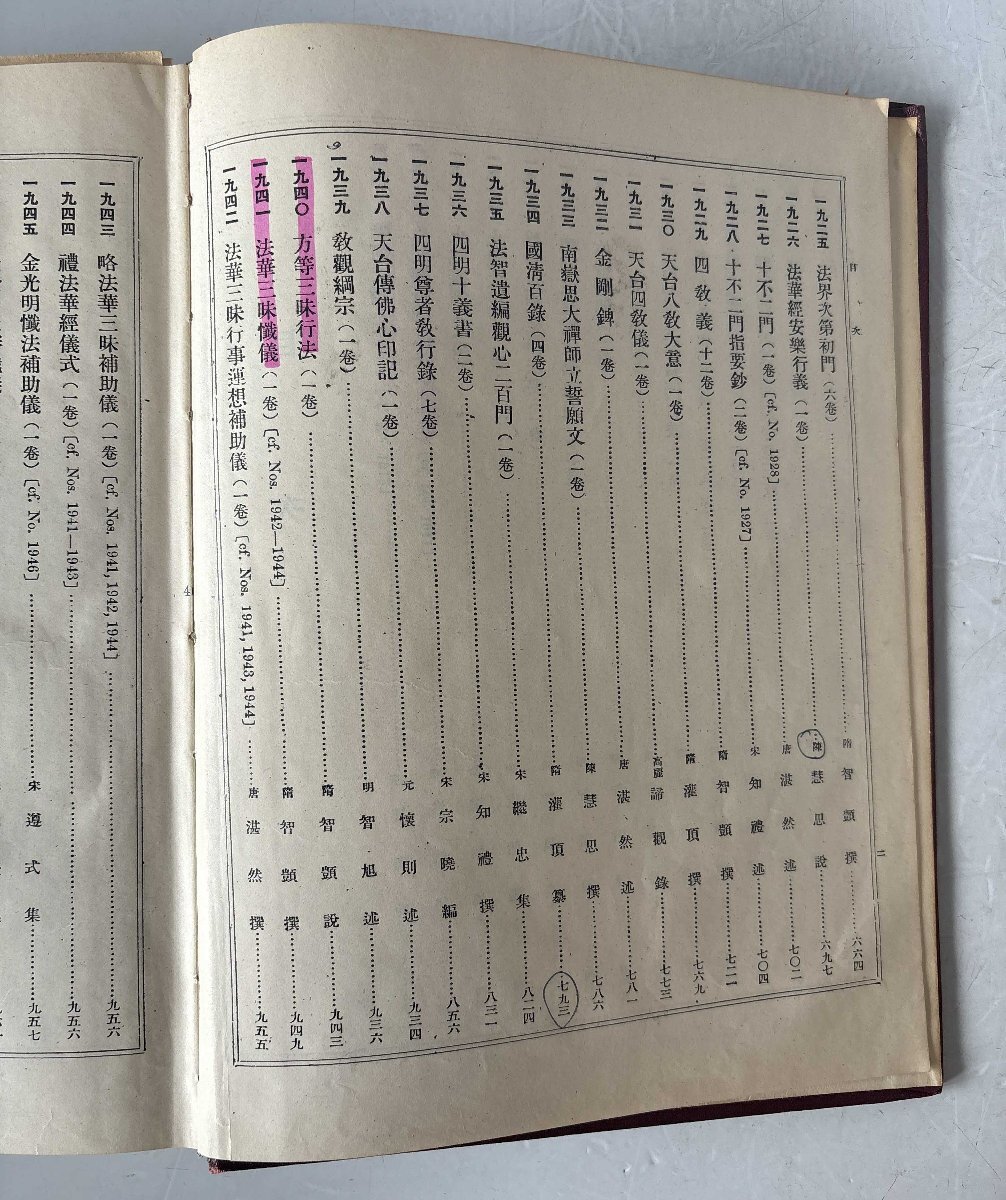 目次
一九二五 法界次第初門(六卷)……隋 智顗撰……六六四
一九二六 法華經安樂行義(一卷)……陳 慧思說……六九七
一九二七 十不二門(一卷)[cf. No. 1928]……唐 湛然述……七〇二
一九二八 十不二門指要鈔(二卷)[cf. No. 1927]……宋 知禮述……七〇四
一九二九 四敎義(十二卷)……隋 智顗撰……七二一
一九三〇 天台八敎大意(一卷)……隋 灌頂撰……七六九
一九三一 天台四敎儀(一卷)……高麗 諦觀錄……七七三
一九三二 金剛錍(一卷)……唐 湛然述……七八一
一九三三 南嶽思大禪師立誓願文(一卷)……陳 慧思撰……七八六
一九三四 國淸百錄(四卷)……隋 灌頂纂……七九三
一九三五 法智遺編觀心二百門(一卷)……宋 繼忠集……八二四
一九三六 四明十義書(二卷)……宋 知禮撰……八三一
一九三七 四明尊者敎行錄(七卷)……宋 宗曉編……八五六
一九三八 天台傳佛心印記(一卷)……元 懷則述……九三四
一九三九 敎觀綱宗(一卷)……明 智旭述……九三六
一九四〇 方等三昧行法(一卷)……隋 智顗說……九四三
一九四一 法華三昧懺儀(一卷)[cf. Nos. 1942—1944]……隋 智顗撰……九四九
一九四二 法華三昧行事運想補助儀(一卷)[cf. Nos. 1941, 1943, 1944]……唐 湛然撰……九五五
二
一九四三 略法華三昧補助儀(一卷)[cf. Nos. 1941, 1942, 1944]……九五六
一九四四 禮法華經儀式(一卷)[cf. Nos. 1941—1943]……九五六
一九四五 金光明懺法補助儀(一卷)[cf. No. 1946]……宋 遵式集……九五七